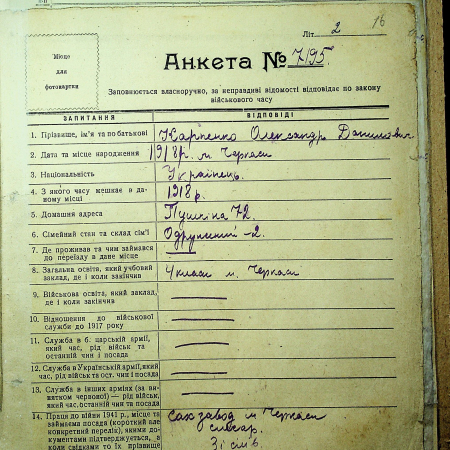 16
Літ. 2
Місце
для
фотокартки
Анкета № 7195.
Заповнюється власноручно, за неправдиві відомості відповідає по закону
військового часу
ЗАПИТАННЯ ВІДПОВІДІ
1. Прізвище, ім'я та по батькові Карпенко Олександр Данилович.
2. Дата та місце народження 1918р. м. Черкаси
3. Національність Українець.
4. З якого часу мешкає в даному місці 1918 р.
5. Домашня адреса Пушкіна 72.
6. Сімейний стан та склад сім'ї Одружений -2.
7. Де проживав та чим займався
до переїзду в дане місце
8. Загальна освіта, який учбовий
заклад, де і коли закінчив 4 класи м. Черкаси
9. Військова освіта, який заклад,
де і коли закінчив
10. Відношення до військової
служби до 1917 року
11. Служба в б. царській армії,
який час, рід військ та
останній чин і посада
12. Служба в Українській армії, який
час, рід військ та ост. чин і посада
13. Служба в інших арміях (за ви-
нятком червоної) — рід військ,
який час, останній чин та посада
14. Праця до війни 1941 р., місце та
займаєма посада (короткий але
конкретний перелік), якими до-
кументами підтверджується, а
коли свідками то їх прізвище
завод м Черкаси
слюсар.